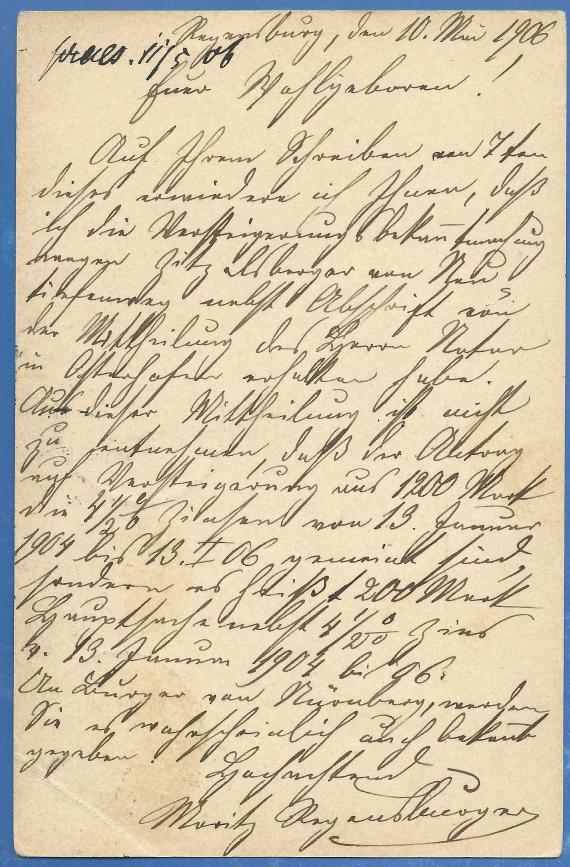 Regensburg, den 10. Mai 1906
praes. 11/5 06
Euer Wohlgeboren!
Auf Ihrem Schreiben vom 7ten
dieses erwiedere ich Ihnen, daß
ich die Versteigerungsbekanntmachung
wegen von Neu
tiefenweg nebst Abschrift von
der Mittheilung des Herrn Notar
in Osterhofen erhalten habe.
Aus dieser Mittheilung ist nicht
zu entnehmen daß der Antrag
auf Versteigerung aus 1200 Mark
die 4½% Zinsen vom 13. Januar
1904 bis 13. I 06 gemeint sind,
sondern es heißt 1200 Mark
Hauptsache nebst 4½% Zins
v. 13. Januar 1904 bis 06.
An Burger von Nürnberg, werden
Sie es wahrscheinlich auch bekannt
gegeben.
Hochachtend
Moritz Regensburger